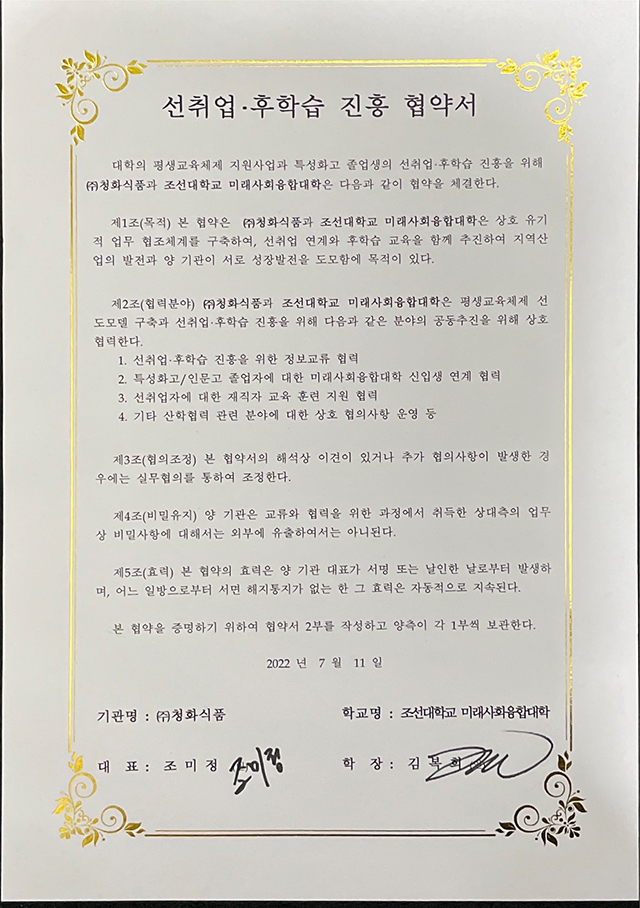 선취업·후학습 진흥 협약서
대학의 평생교육체제 지원사업과 특성화고 졸업생의 선취업·후학습 진흥을 위해
㈜청화식품과 조선대학교 미래사회융합대학은 다음과 같이 협약을 체결한다.
제1조(목적) 본 협약은 ㈜청화식품과 조선대학교 미래사회융합대학은 상호 유기
적 업무 협조체계를 구축하여, 선취업 연계와 후학습 교육을 함께 추진하여 지역산
업의 발전과 양 기관이 서로 성장발전을 도모함에 목적이 있다.
제2조(협력분야) ㈜청화식품과 조선대학교 미래사회융합대학은 평생교육체제 선
도모델 구축과 선취업·후학습 진흥을 위해 다음과 같은 분야의 공동추진을 위해 상호
협력한다.
1. 선취업·후학습 진흥을 위한 정보교류 협력
2. 특성화고/인문고 졸업자에 대한 미래사회융합대학 신입생 연계 협력
3. 선취업자에 대한 재직자 교육 훈련 지원 협력
4. 기타 산학협력 관련 분야에 대한 상호 협의사항 운영 등
제3조(협의조정) 본 협약서의 해석상 이견이 있거나 추가 협의사항이 발생한 경
우에는 실무협의를 통하여 조정한다.
제4조(비밀유지) 양 기관은 교류와 협력을 위한 과정에서 취득한 상대측의 업무
상 비밀사항에 대해서는 외부에 유출하여서는 아니된다.
제5조(효력) 본 협약의 효력은 양 기관 대표가 서명 또는 날인한 날로부터 발생하
며, 어느 일방으로부터 서면 해지통지가 없는 한 그 효력은 자동적으로 지속된다.
본 협약을 증명하기 위하여 협약서 2부를 작성하고 양측이 각 1부씩 보관한다.
2022 년 7 월 11 일
기관명 : ㈜청화식품 학교명 : 조선대학교 미래사회융합대학
대 표 : 조미정 조미정 학 장 : 김복희